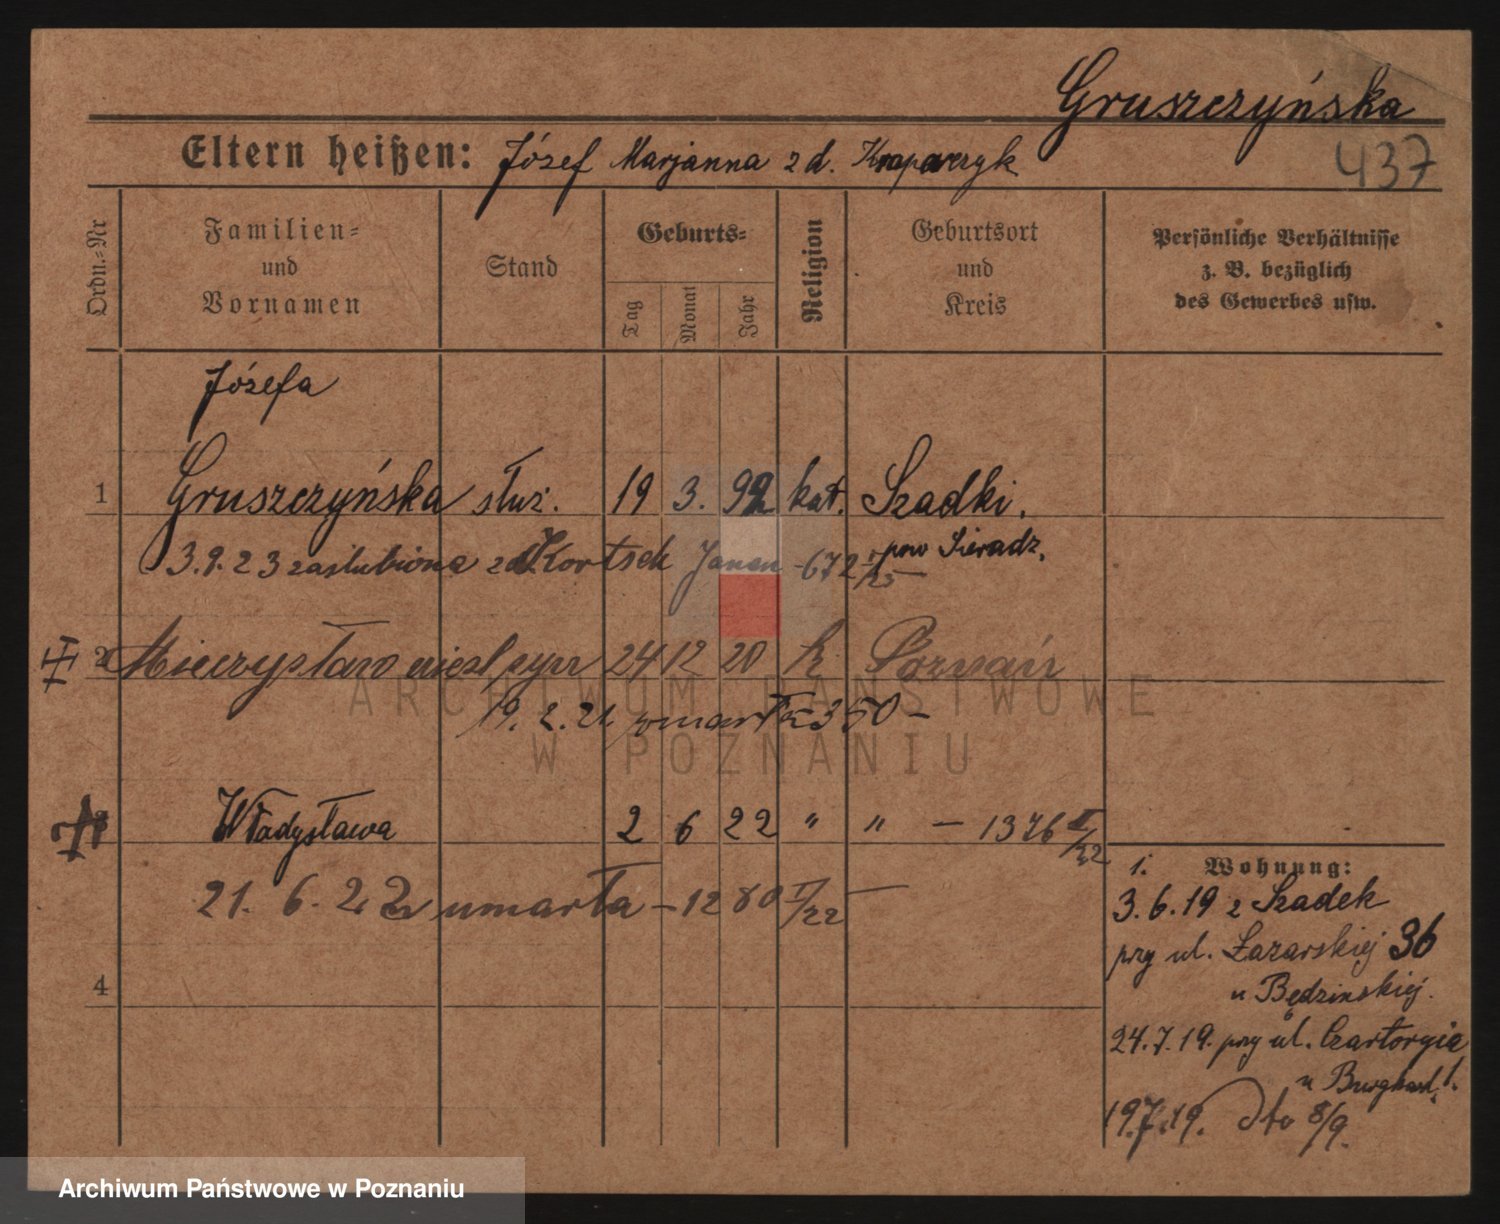 Gruszczyńska
437
Eltern heißen: Józef Marjanna z d.
Ordn.=Nr
Familien=
und
Vornamen
Stand
Geburts=
Tag
Monat
Jahr
Religion
Geburtsort
und
Kreis
Persönliche Verhältnisse
z. B. bezüglich
des Gewerbes usw.
Józefa
1 Gruszczyńska służ. 19 3. 92 kat. Szadki.
pow Sieradz.
3.9.23 zaślubiona Janem -672
2 Mieczysław 24 12 20 k. Poznań
19. 2. 21 zmarł 350 -
ARCHIWUM PAŃSTWOWE
W POZNANIU
3 Władysława 2 6 22 " " - 1376 II/22
21. 6. 22 umarła - 1280 II/22 -
4
1. Wohnung:
3.6.19 z Szadek
przy ul. Łazarskiej 36
u Będzinskiej.
24.7.19. przy ul. Czartoryia
1.
19.7.19. dto 8/9.
Archiwum Państwowe w Poznaniu